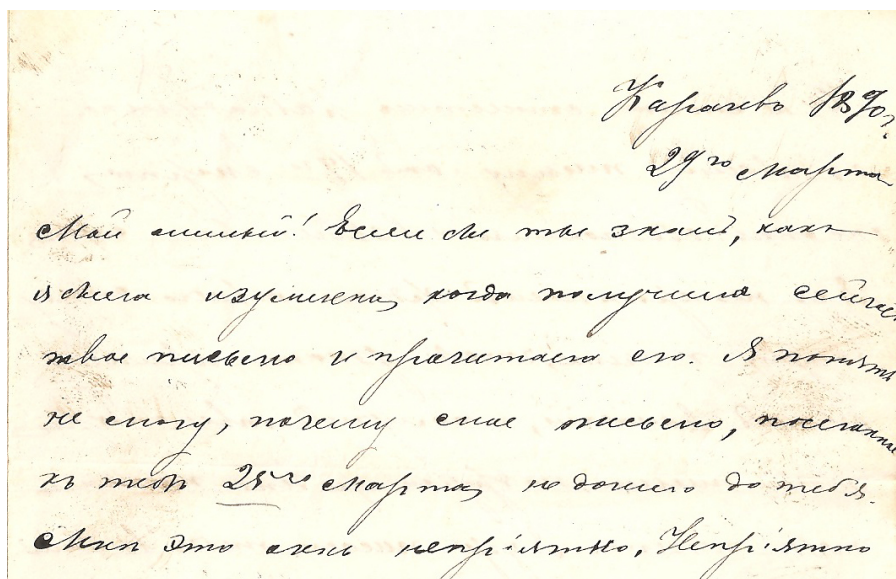 Карачевъ 1890 г.
29го Марта
Мой милый! Если бы ты зналъ, какъ
я была изумлена, когда получила сейчас
твое письмо и прочитала его. Я понять
не могу, почему мое письмо, посланное
къ тебѣ 25го Марта, не дошло до тебя.
Мнѣ это очень непріятно, Непріятно